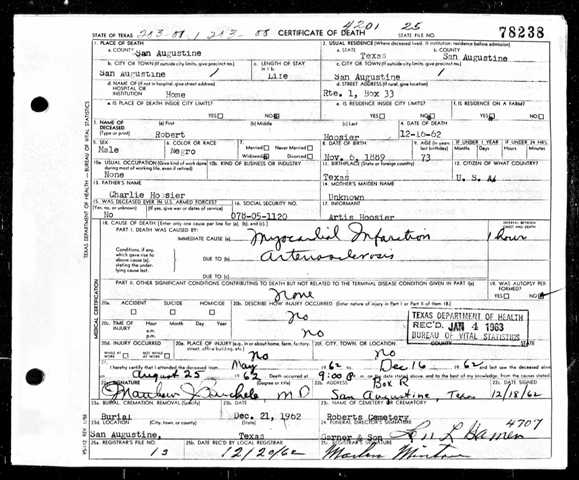 4201 25
STATE OF TEXAS 213-08 / 213-08 CERTIFICATE OF DEATH STATE FILE NO. 78238
1. PLACE OF DEATH
a. COUNTY San Augustine
2. USUAL RESIDENCE (Where deceased lived. If institution: residence before admission)
a. STATE Texas b. COUNTY San Augustine
b. CITY OR TOWN (If outside city limits, give precinct no.) San Augustine
c. LENGTH OF STAY in 1 b Life
c. CITY OR TOWN (If outside city limits, give precinct no.) San Augustine
d. NAME OF (If not in hospital, give street address) HOSPITAL OR INSTITUTION Home
d. STREET ADDRESS (If rural, give location) Rte. 1, Box 33
e. IS PLACE OF DEATH INSIDE CITY LIMITS? YES NO
e. IS RESIDENCE INSIDE CITY LIMITS? YES NO
f. IS RESIDENCE ON A FARM? YES NO
3. NAME OF DECEASED (Type or print) (a) First Robert (b) Middle (c) Last Hoosier
4. DATE OF DEATH 12-16-62
5. SEX Male
6. COLOR OR RACE Negro
7. Married Never Married Widowed Divorced
8. DATE OF BIRTH Nov. 6, 1889
9. AGE 73
IF UNDER 1 YEAR Months Days
IF UNDER 24 HRS. Hours Min.
10a. USUAL OCCUPATION (Give kind of work done during most of working life, even if retired) None
10b. KIND OF BUSINESS OR INDUSTRY
11. BIRTHPLACE (State or foreign country) Texas
12. CITIZEN OF WHAT COUNTRY? U. S. A.
13. FATHER'S NAME Charlie Hoosier
14. MOTHER'S MAIDEN NAME Unknown
15. WAS DECEASED EVER IN U.S. ARMED FORCES? (Yes, no, or unknown) (If yes, give war or dates of service) No
16. SOCIAL SECURITY NO. 078-05-1120
17. INFORMANT Artis Hoosier
18. CAUSE OF DEATH [Enter only one cause per line for (a), (b), and (c).]
INTERVAL BETWEEN ONSET AND DEATH
PART I. DEATH WAS CAUSED BY:
IMMEDIATE CAUSE (a) Myocardial Infarction 1 hour
Conditions, if any, which gave rise to above cause (a), stating the underlying cause last.
DUE TO (b) Arteriosclerosis
DUE TO (c)
PART II. OTHER SIGNIFICANT CONDITIONS CONTRIBUTING TO DEATH BUT NOT RELATED TO THE TERMINAL DISEASE CONDITION GIVEN IN PART I (a)
None
19. WAS AUTOPSY PERFORMED? YES NO
20a. ACCIDENT SUICIDE HOMICIDE
20b. DESCRIBE HOW INJURY OCCURRED. (Enter nature of injury in Part I or Part II of item 18.)
no
20c. TIME OF INJURY Hour Month Day Year a.m. p.m.
no
TEXAS DEPARTMENT OF HEALTH
REC'D. JAN 4 1963
BUREAU OF VITAL STATISTICS
20d. INJURY OCCURRED WHILE AT WORK NOT WHILE AT WORK
20e. PLACE OF INJURY (e.g. in or about home, farm, factory, street, office building, etc.) No
20f. CITY, TOWN, OR LOCATION COUNTY STATE
No
21. I hereby certify that I attended the deceased from May 1962 to Dec 16 1962 and last saw the deceased alive
on August 25 1962 Death occurred at 9:00 p m. on the date stated above, and to the best of my knowledge, from the causes stated.
22a. SIGNATURE (Degree or title) M D
22b. ADDRESS Box R San Augustine, Texas
22c. DATE SIGNED 12/18/62
23a. BURIAL, CREMATION, REMOVAL (Specify) Burial
23b. DATE Dec. 21, 1962
23c. NAME OF CEMETERY OR CREMATORY Roberts Cemetery
23d. LOCATION (City, town, or county) (State) San Augustine, Texas
24. FUNERAL DIRECTOR'S SIGNATURE Garner & Son 4707
25a. REGISTRAR'S FILE NO. 13
25b. DATE REC'D BY LOCAL REGISTRAR 12/20/62
25c. REGISTRAR'S SIGNATURE
TEXAS DEPARTMENT OF HEALTH—BUREAU OF VITAL STATISTICS
MEDICAL CERTIFICATION